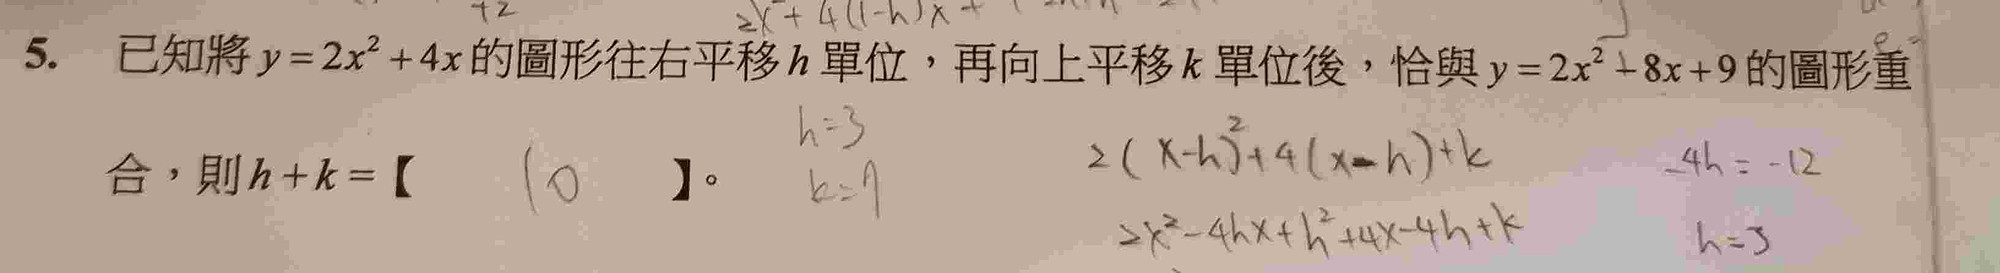 +2
2x² + 4(1-h)x +
5. 已知將 y = 2x² + 4x 的圖形往右平移 h 單位，再向上平移 k 單位後，恰與 y = 2x² - 8x + 9 的圖形重
合，則 h + k = 【 10 】。
h=3
k=7
2(x-h)²+4(x-h)+k
2x²-4hx+h²+4x-4h+k
-4h = -12
h=3